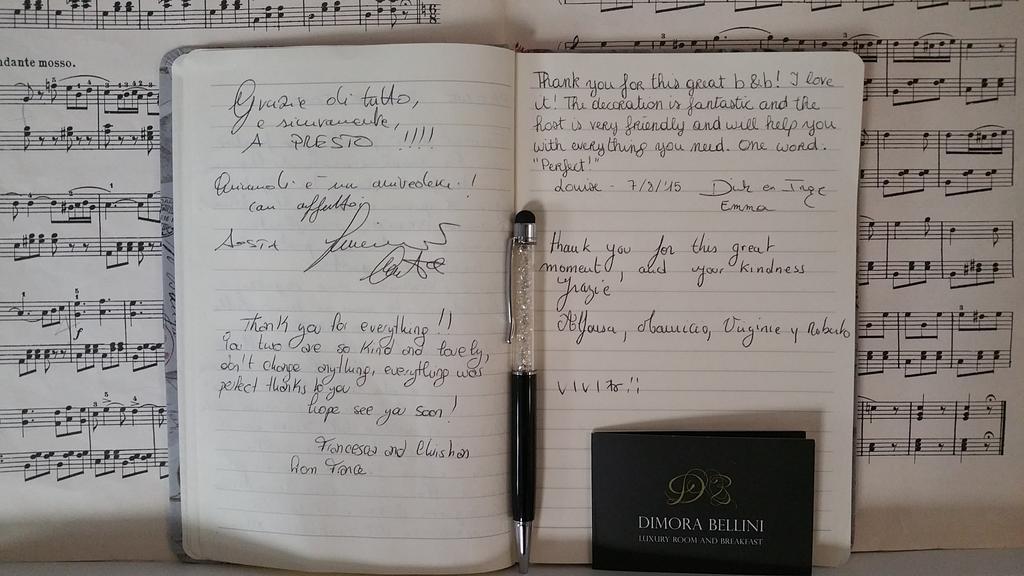 andante mosso.
Grazie di tutto,
e sicuramente,
A PRESTO !!!!
Quindi è un arrivederci !
con affetto,
AOSTA
Thank you for everything !!
You two are so kind and lovely,
don't change anything, everything was
perfect thanks to you
hope see you soon !
Francesca and
from France
Thank you for this great b&b! I love
it! The decoration is fantastic and the
host is very friendly and will help you
with everything you need. One word.
"Perfect!"
Louise - 7/8/'15 Dirk en Inge
Emma
Thank you for this great
moment, and your kindness
Grazie
Mauricio, Virginie y Roberto
DB
DIMORA BELLINI
LUXURY ROOM AND BREAKFAST